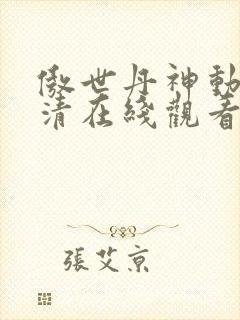 傲世丹神動
清在綫觀看
張艾京